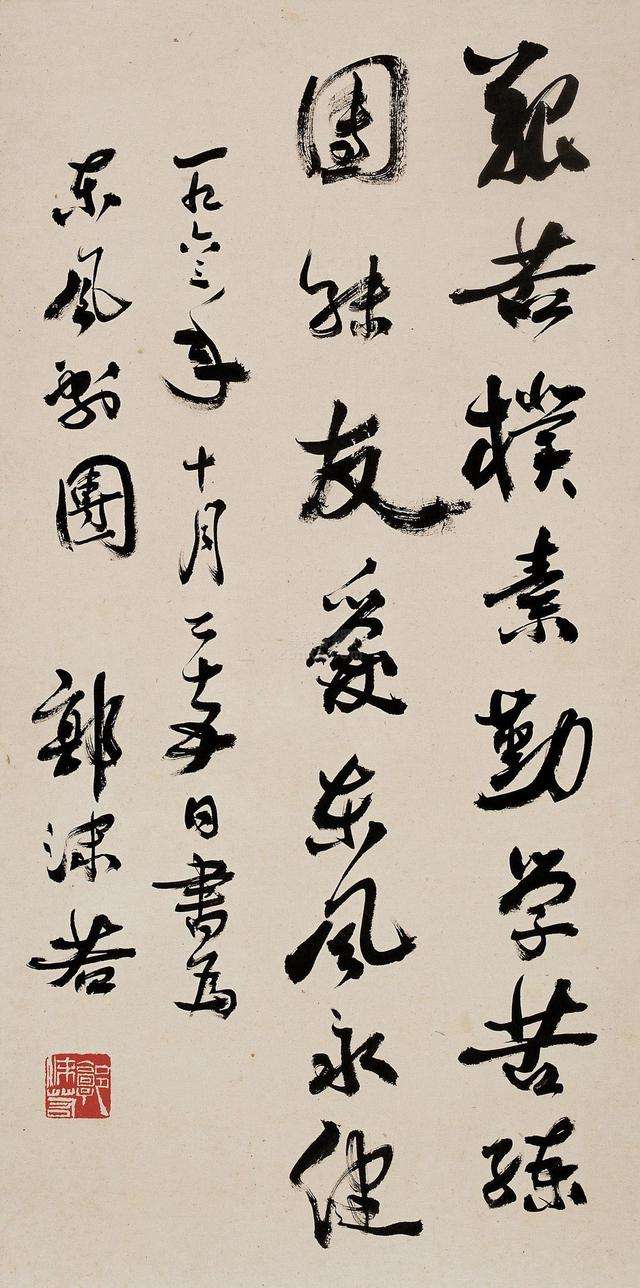 艱苦樸素勤学苦練
團結友愛东风永健
一九六三年十月二十五日書為
东风劇團 郭沫若
郭沫若